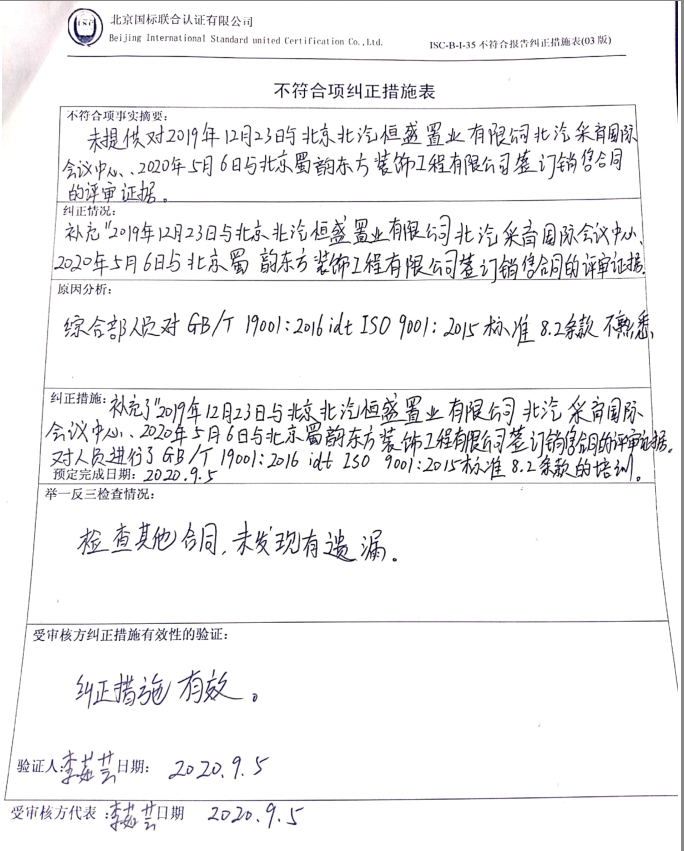 ISC
北京国标联合认证有限公司
Beijing International Standard united Certification Co.,Ltd.
ISC-B-I-35 不符合报告纠正措施表(03 版)
不符合项纠正措施表
不符合项事实摘要：
未提供对2019年12月23日与北京北汽恒盛置业有限公司北汽采育国际
会议中心、2020年5月6日与北京蜀韵东方装饰工程有限公司签订销售合同
的评审证据。
纠正情况：
补充"2019年12月23日与北京北汽恒盛置业有限公司北汽采育国际会议中心、
2020年5月6日与北京蜀韵东方装饰工程有限公司签订销售合同的评审证据.
原因分析：
综合部人员对GB/T 19001:2016 idt ISO 9001:2015标准 8.2条款不熟悉、
纠正措施：补充了"2019年12月23日与北京北汽恒盛置业有限公司北汽采育国际
会议中心、2020年5月6日与北京蜀韵东方装饰工程有限公司签订销售合同的评审证据.
对人员进行了GB/T 19001:2016 idt ISO 9001:2015标准8.2条款的培训。
预定完成日期：2020.9.5
举一反三检查情况：
检查其他合同,未发现有遗漏。
受审核方纠正措施有效性的验证：
纠正措施有效。
验证人:李 芸日期： 2020.9.5
受审核方代表：李 芸日期 2020.9.5